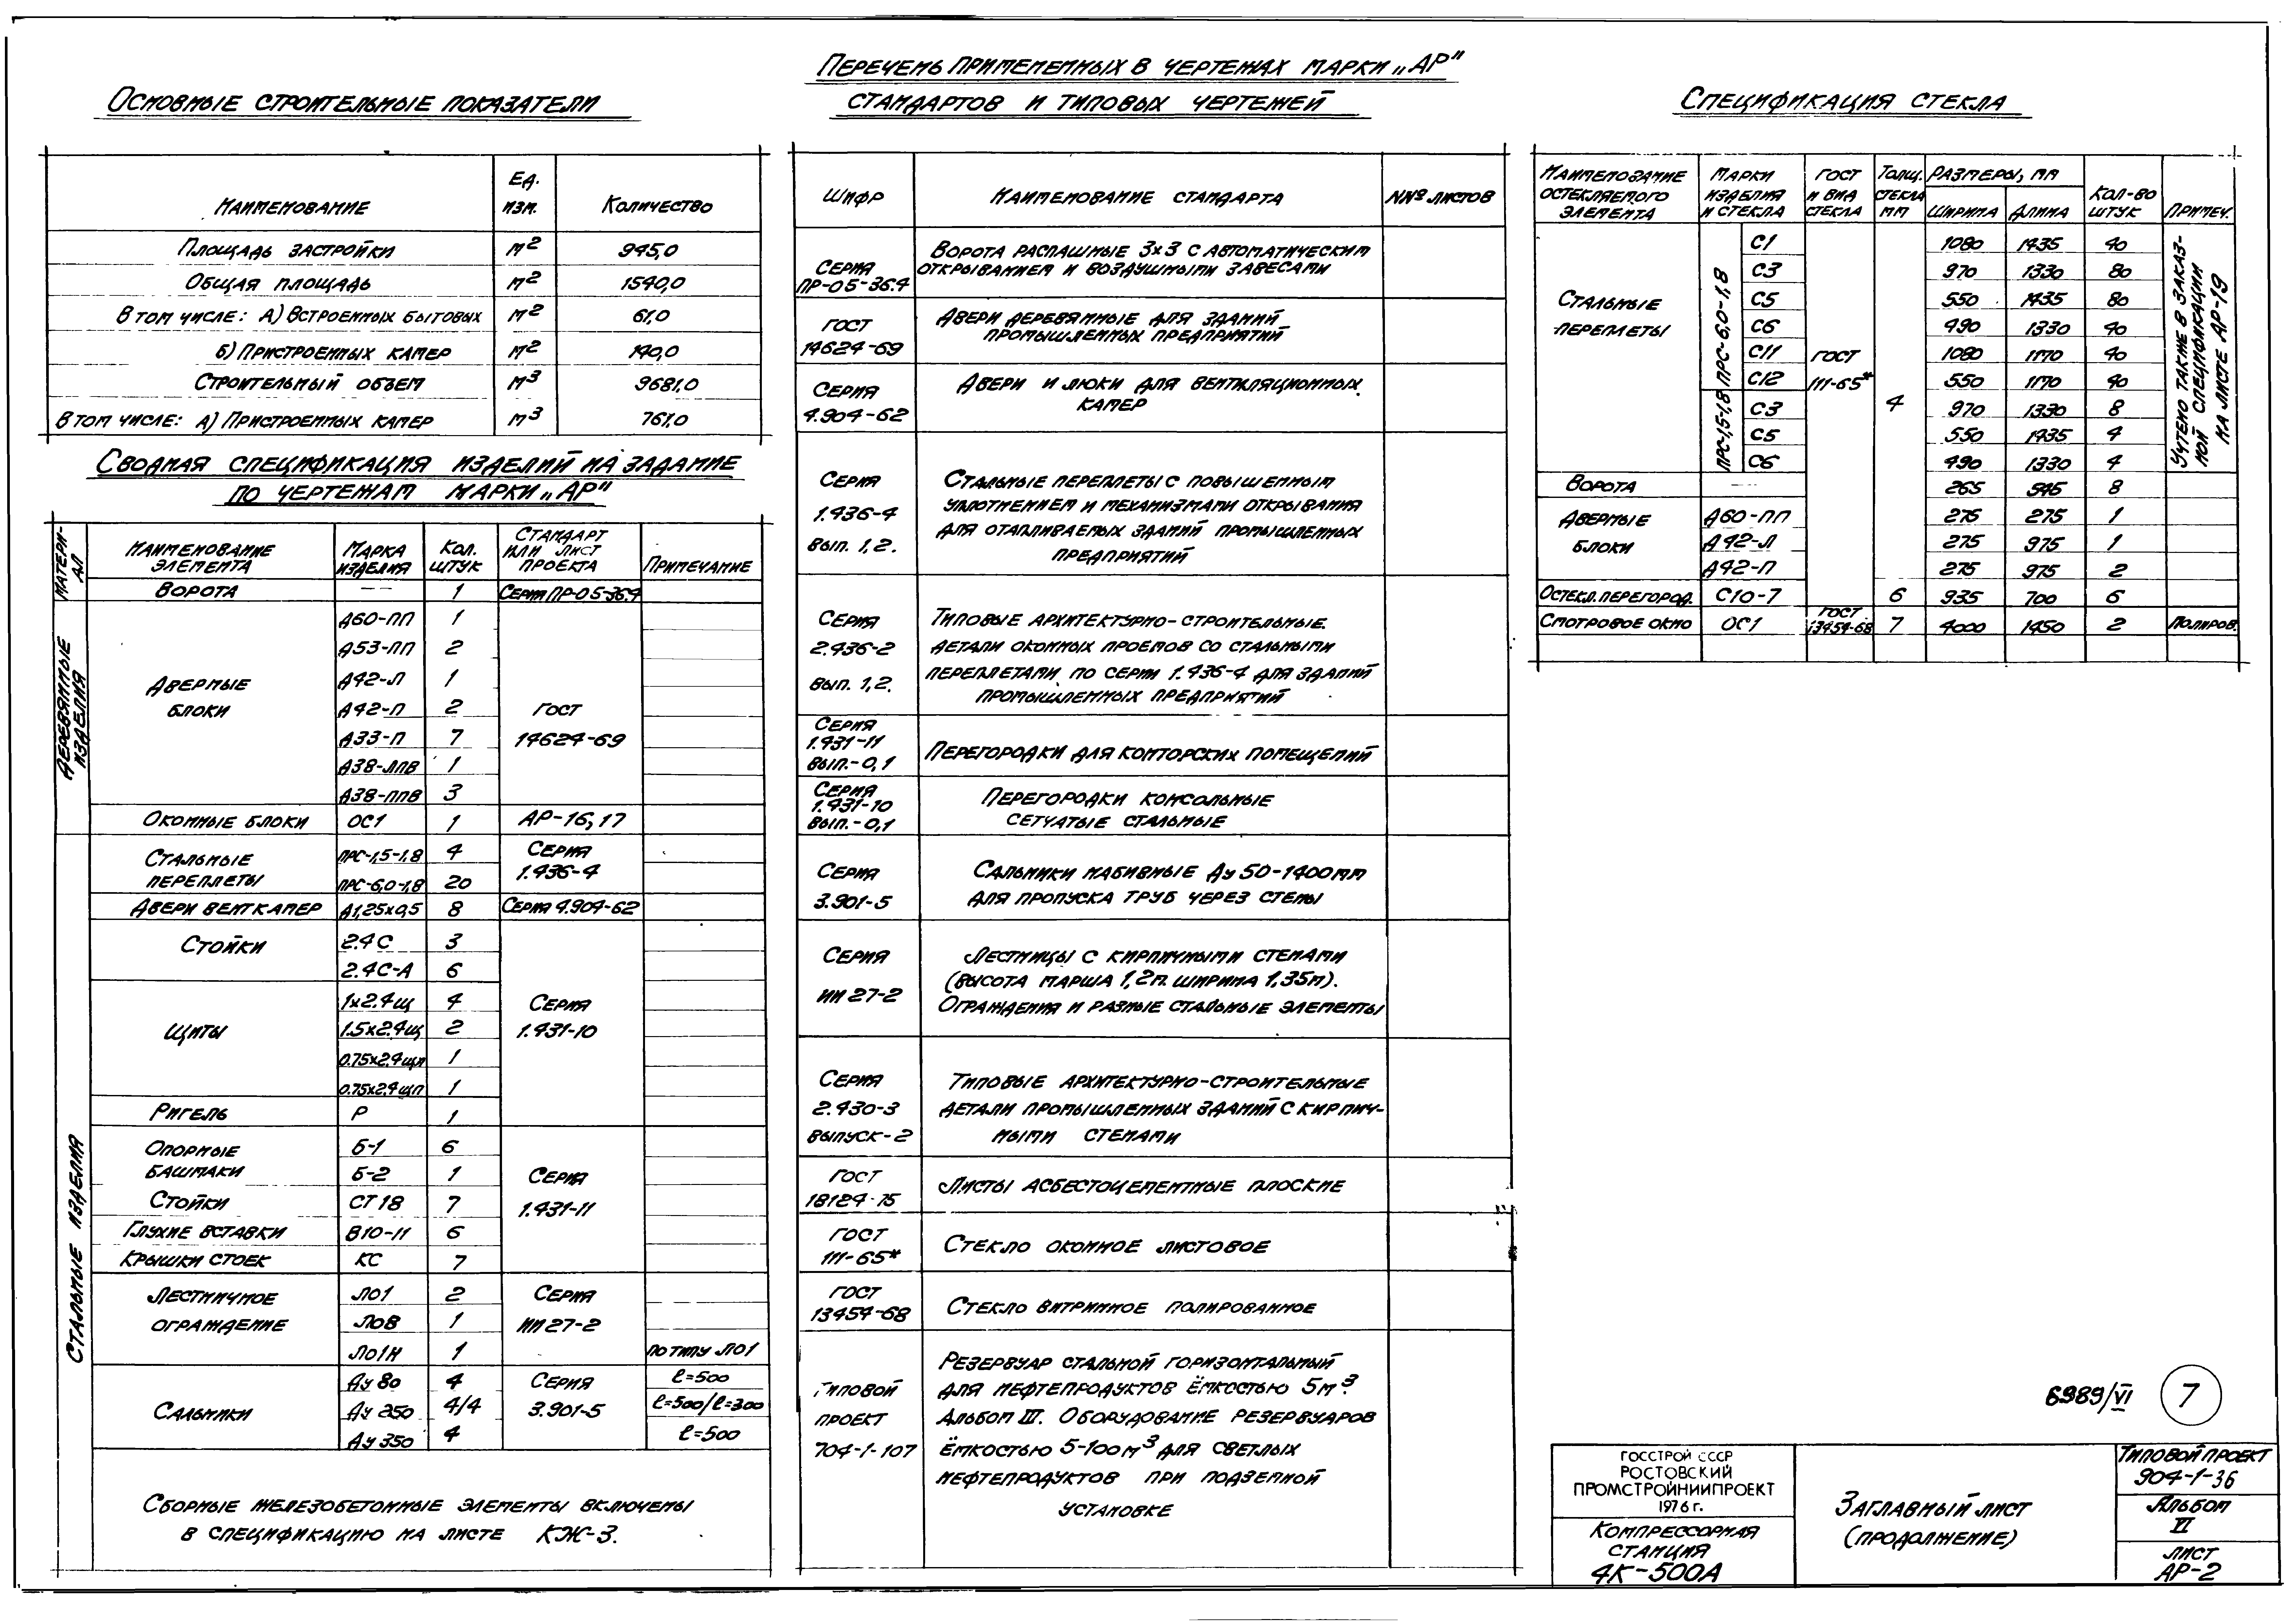 Основные строительные показатели
Наименование | Ед. изм. | Количество
Площадь застройки | м2 | 945,0
Общая площадь | м2 | 1540,0
В том числе: а) Встроенных бытовых | м2 | 61,0
б) Пристроенных камер | м2 | 140,0
Строительный объем | м3 | 9681,0
В том числе: а) Пристроенных камер | м3 | 761,0
Сводная спецификация изделий на здание
по чертежам марки „АР"
Матери-ал | Наименование элемента | Марка изделия | Кол. штук | Стандарт или лист проекта | Примечание
Деревянные изделия
Ворота | — | 1 | Серия ПР-05-36.4
Дверные блоки | Д60-ПП | 1 | ГОСТ 14624-69
Д53-ПП | 2
Д42-Л | 1
Д42-П | 2
Д33-П | 7
Д38-ЛПВ | 1
Д38-ППВ | 3
Оконные блоки | ОС1 | 1 | АР-16,17
Стальные изделия
Стальные переплеты | ПРС-1,5-1,8 | 4 | Серия 1.436-4
ПРС-6,0-1,8 | 20
Двери венткамер | Д1,25х0,5 | 8 | Серия 4.904-62
Стойки | 2.4С | 3 | Серия 1.431-10
2.4С-А | 6
Щиты | 1х2.4щ | 4
1.5х2.4щ | 2
0.75х2.4щл | 1
0.75х2.4щп | 1
Ригель | Р | 1
Опорные башмаки | Б-1 | 6 | Серия 1.431-11
Б-2 | 1
Стойки | СТ18 | 7
Глухие вставки | В10-11 | 6
Крышки стоек | КС | 7
Лестничное ограждение | ЛО1 | 2 | Серия ИИ27-2
ЛОВ | 1
ЛО1Н | 1 | по типу ЛО1
Сальники | Ду 80 | 4 | Серия 3.901-5 | ℓ=500
Ду 250 | 4/4 | ℓ=500/ℓ=300
Ду 350 | 4 | ℓ=500
Сборные железобетонные элементы включены
в спецификацию на листе КЖ-3.
Перечень примененных в чертежах марки „АР"
стандартов и типовых чертежей
Шифр | Наименование стандарта | NNº листов
Серия ПР-05-36.4 | Ворота распашные 3х3 с автоматическим
открыванием и воздушными завесами
ГОСТ 14624-69 | Двери деревянные для зданий
промышленных предприятий
Серия 4.904-62 | Двери и люки для вентиляционных
камер
Серия 1.436-4 Вып. 1,2. | Стальные переплеты с повышенным
уплотнением и механизмами открывания
для отапливаемых зданий промышленных
предприятий
Серия 2.436-2 Вып. 1,2. | Типовые архитектурно-строительные
детали оконных проемов со стальными
переплетами по серии 1.436-4 для зданий
промышленных предприятий
Серия 1.431-11 Вып.-0,1 | Перегородки для конторских помещений
Серия 1.431-10 Вып.-0,1 | Перегородки консольные
сетчатые стальные
Серия 3.901-5 | Сальники набивные Ду 50-1400мм
для пропуска труб через стены
Серия ИИ 27-2 | Лестницы с кирпичными стенами
(высота марша 1,2м. ширина 1,35м).
Ограждения и разные стальные элементы
Серия 2.430-3 выпуск-2 | Типовые архитектурно-строительные
детали промышленных зданий с кирпич-
ными стенами
ГОСТ 18124-75 | Листы асбестоцементные плоские
ГОСТ 111-65* | Стекло оконное листовое
ГОСТ 13454-68 | Стекло витринное полированное
Типовой проект 704-1-107 | Резервуар стальной горизонтальный
для нефтепродуктов ёмкостью 5м3.
Альбом III. Оборудование резервуаров
ёмкостью 5-100м3 для светлых
нефтепродуктов при подземной
установке
Спецификация стекла
Наименование остекляемого элемента | Марки изделия и стекла | ГОСТ и вид стекла | Толщ. стекла мм | Размеры, мм Ширина | Длина | Кол-во штук | Примеч.
Стальные переплеты | ПРС-6,0-1,8 | С1 | ГОСТ 111-65* | 4 | 1080 | 1435 | 40 | Учтено также в заказ-ной спецификации на листе АР-19
С3 | 970 | 1330 | 80
С5 | 550 | 1435 | 80
С6 | 490 | 1330 | 40
С11 | 1080 | 1170 | 40
С12 | 550 | 1170 | 40
ПРС-1,5-1,8 | С3 | 970 | 1330 | 8
С5 | 550 | 1435 | 4
С6 | 490 | 1330 | 4
Ворота | — | 265 | 545 | 8
Дверные блоки | Д60-ПП | 275 | 275 | 1
Д42-Л | 275 | 975 | 1
Д42-П | 275 | 975 | 2
Остекл. перегород. | С10-7 | 6 | 935 | 700 | 6
Смотровое окно | ОС1 | ГОСТ 13454-68 | 7 | 4000 | 1450 | 2 | Полиров.
6989/VI 7
ГОССТРОЙ СССР
РОСТОВСКИЙ
ПРОМСТРОЙНИИПРОЕКТ
1976г.
Компрессорная
станция
4К-500А
Заглавный лист
(продолжение)
Типовой проект
904-1-36
Альбом
VI
лист
АР-2